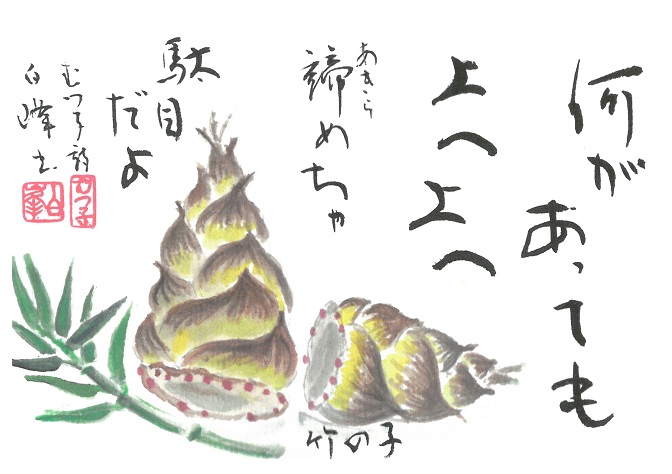 何が
あっても
上へ上へ
あきら
諦めちゃ
駄目
だよ
むつ子詩
白峰書
竹の子